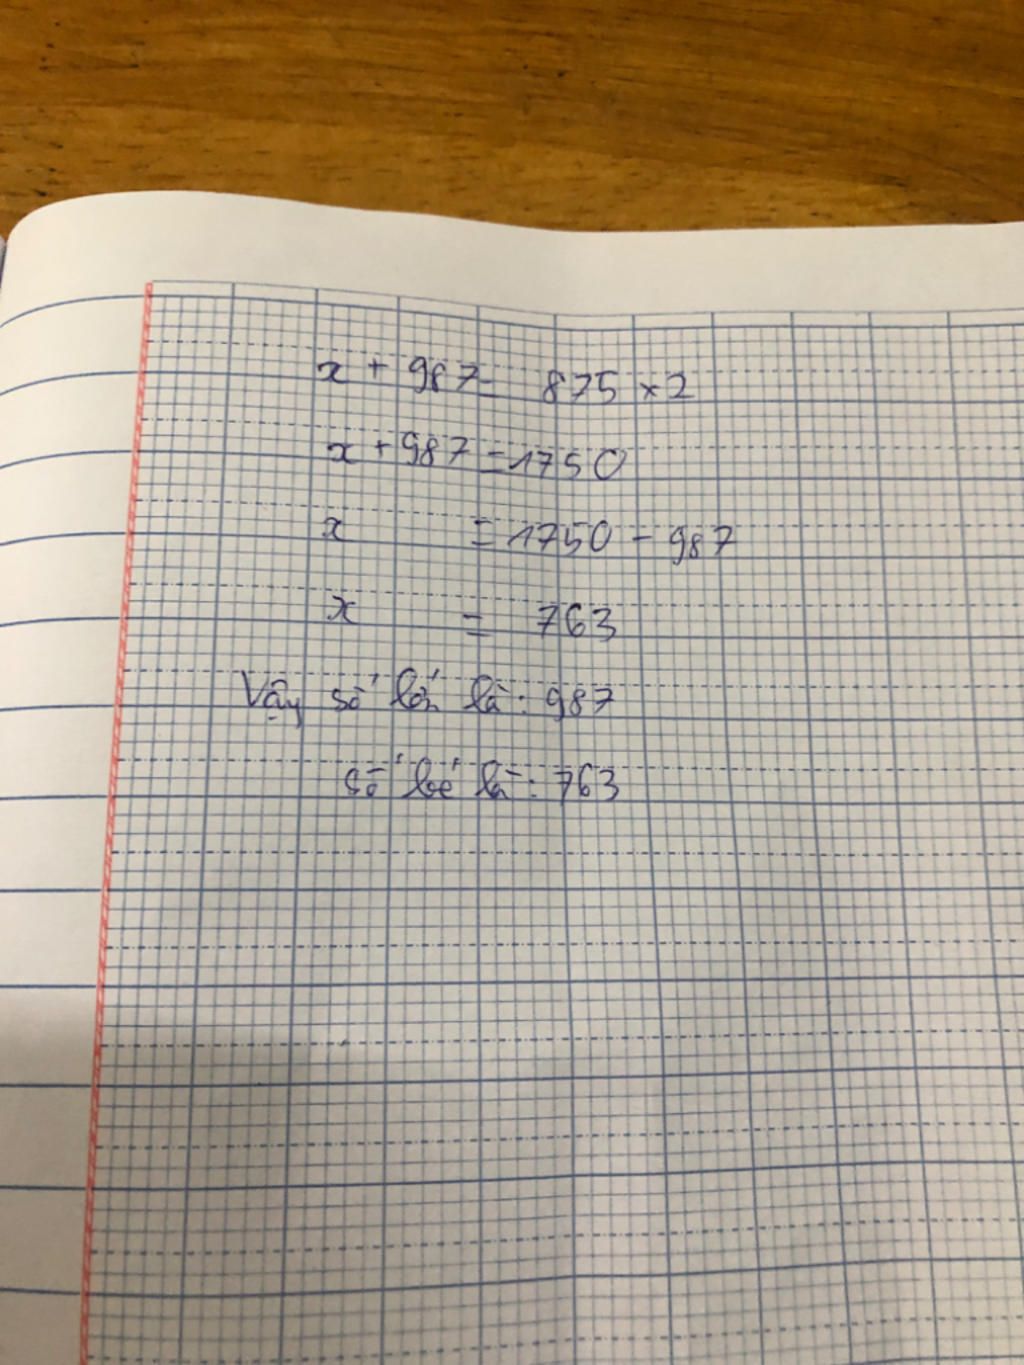 x + 987 = 875 × 2
x + 987 = 1750
x = 1750 - 987
x = 763
Vậy số lớn là : 987
số bé là : 763